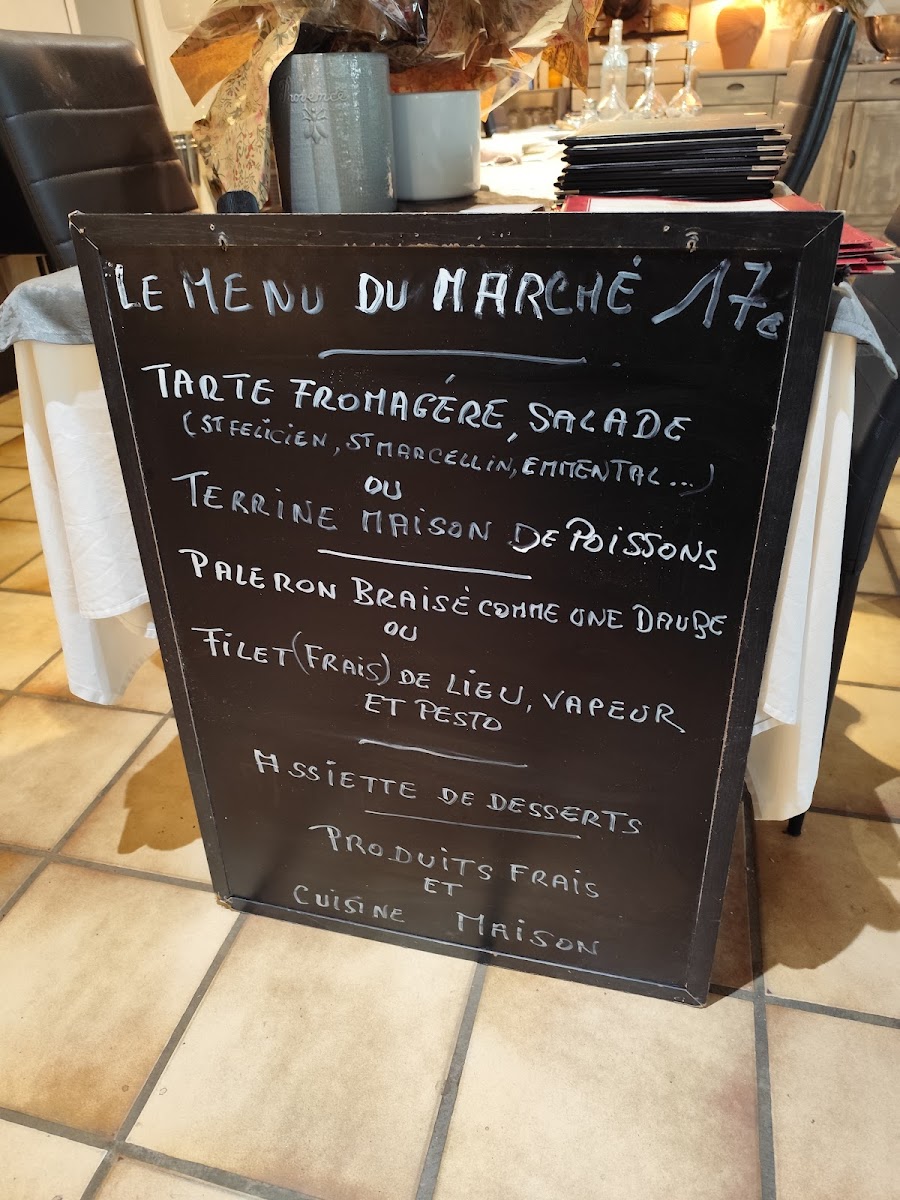 Provence
LE MENU DU MARCHÉ 17€
TARTE FROMAGÉRE, SALADE
(ST FELICIEN, ST MARCELLIN, EMMENTAL...)
OU
TERRINE MAISON DE POISSONS
PALERON BRAISÉ COMME UNE DAUBE
OU
FILET (FRAIS) DE LIEU, VAPEUR
ET PESTO
ASSIETTE DE DESSERTS
PRODUITS FRAIS
ET
CUISINE MAISON